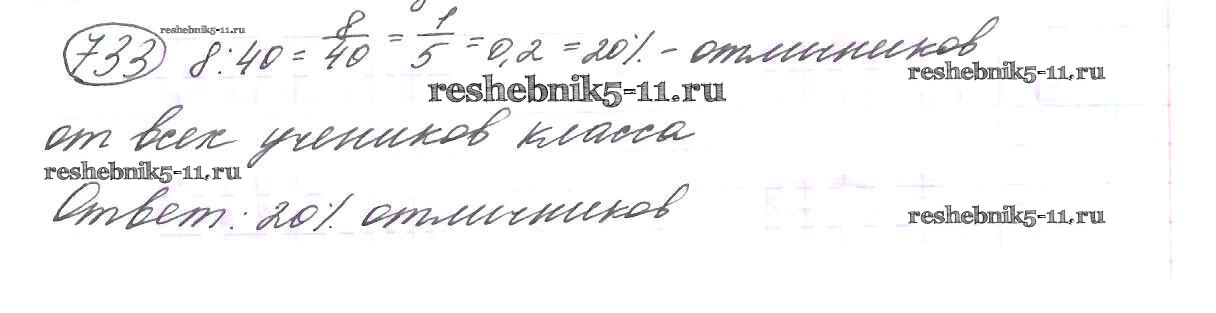 733 8 : 40 = 8/40 = 1/5 = 0,2 = 20% - отличников
reshebnik5-11.ru
reshebnik5-11.ru
reshebnik5-11.ru
от всех учеников класса
reshebnik5-11.ru
Ответ: 20% отличников
reshebnik5-11.ru